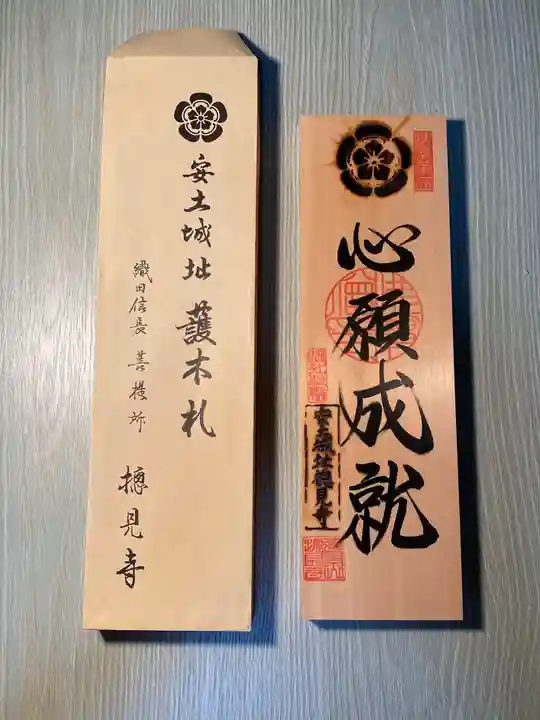 安土城址 護木札
織田信長 菩提所
摠見寺
心願成就
安土城址摠見寺